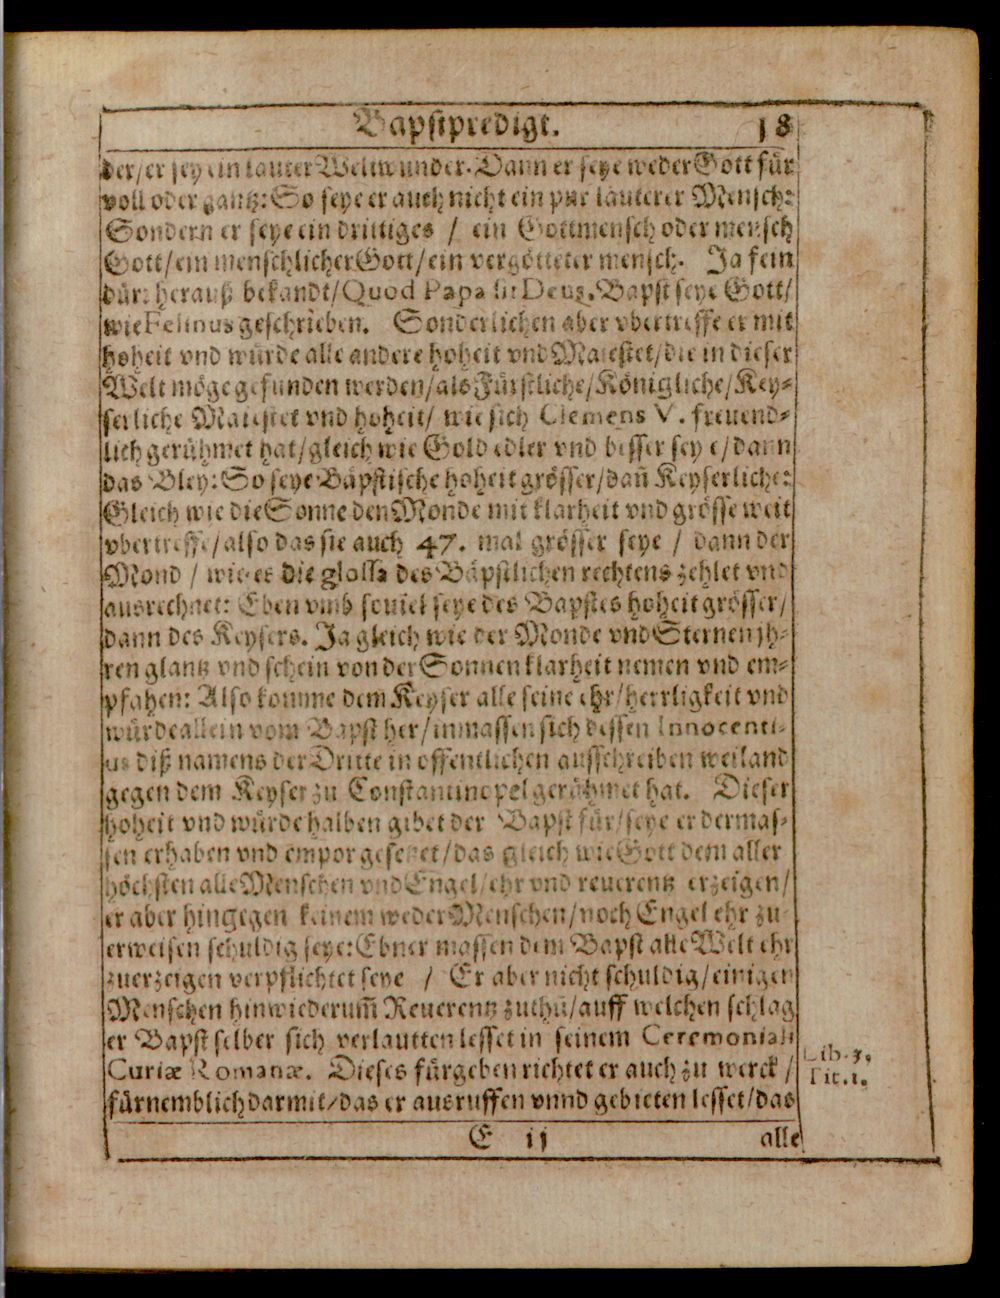 Bapstpredigt. 18
der/er sey ein lauter Weltwunder. Dann er seye weder Gott für
voll oder gantz: So seye er auch nicht ein pur lauterer Mensch:
Sondern er seye ein drittiges / ein Gottmensch oder mensch
Gott/ein menschlicher Gott/ein vergötteter mensch. Ja fein
dürr herauß bekandt/Quod Papa sit Deus. Bapst seye Gott/
wie Felinus geschrieben. Sonderlichen aber vbertreffe er mit
hoheit vnd würde alle andere hoheit vnd Maiestet/die in dieser
Welt möge gefunden werden/als Fürstliche/Königliche/Key-
serliche Maiestet vnd hoheit/ wie sich Clemens V. freuend-
lich gerühmet hat/gleich wie Gold edler vnd besser seye/dann
das Bley: So seye Bäpstische hoheit grösser/dañ Keyserliche:
Gleich wie die Sonne den Monde mit klarheit vnd grösse weit
vbertreffe/also das sie auch 47. mal grösser seye / dann der
Mond / wie es die glossa des Bäpstlichen rechtens zehlet vnd
ausrechnet: Eben vmb souiel seye des Bapstes hoheit grösser/
dann des Keysers. Ja gleich wie der Monde vnd Sternen jh-
ren glantz vnd schein von der Sonnen klarheit nemen vnd em-
pfahen: Also komme dem Keyser alle seine ehr/herrligkeit vnd
würde allein vom Bapst her/inmassen sich dessen Innocenti-
us diß namens der Dritte in offentlichen ausschreiben weiland
gegen dem Keyser zu Constantinopel gerühmet hat. Dieser
hoheit vnd würde halben gibet der Bapst für/seye er dermas-
sen erhaben vnd empor gesetzet/das gleich wie Gott dem aller
höchsten alle Menschen vnd Engel/ehr vnd reuerentz erzeigen/
er aber hingegen keinem weder Menschen/noch Engel ehr zu
erweisen schuldig seye: Ebner massen dem Bapst alle Welt ehr
zuerzeigen verpflichtet seye / Er aber nicht schuldig/einigen
Menschen hinwiederum̃ Reuerentz zuthũ/auff welchen schlag
er Bapst selber sich verlautten lesset in seinem Ceremoniali
Curiæ Romanæ. Dieses fürgeben richtet er auch zu werck /
fürnemblich darmit/das er ausruffen vnnd gebieten lesset/das
Lib. 3.
Tit. 1.
E ij alle